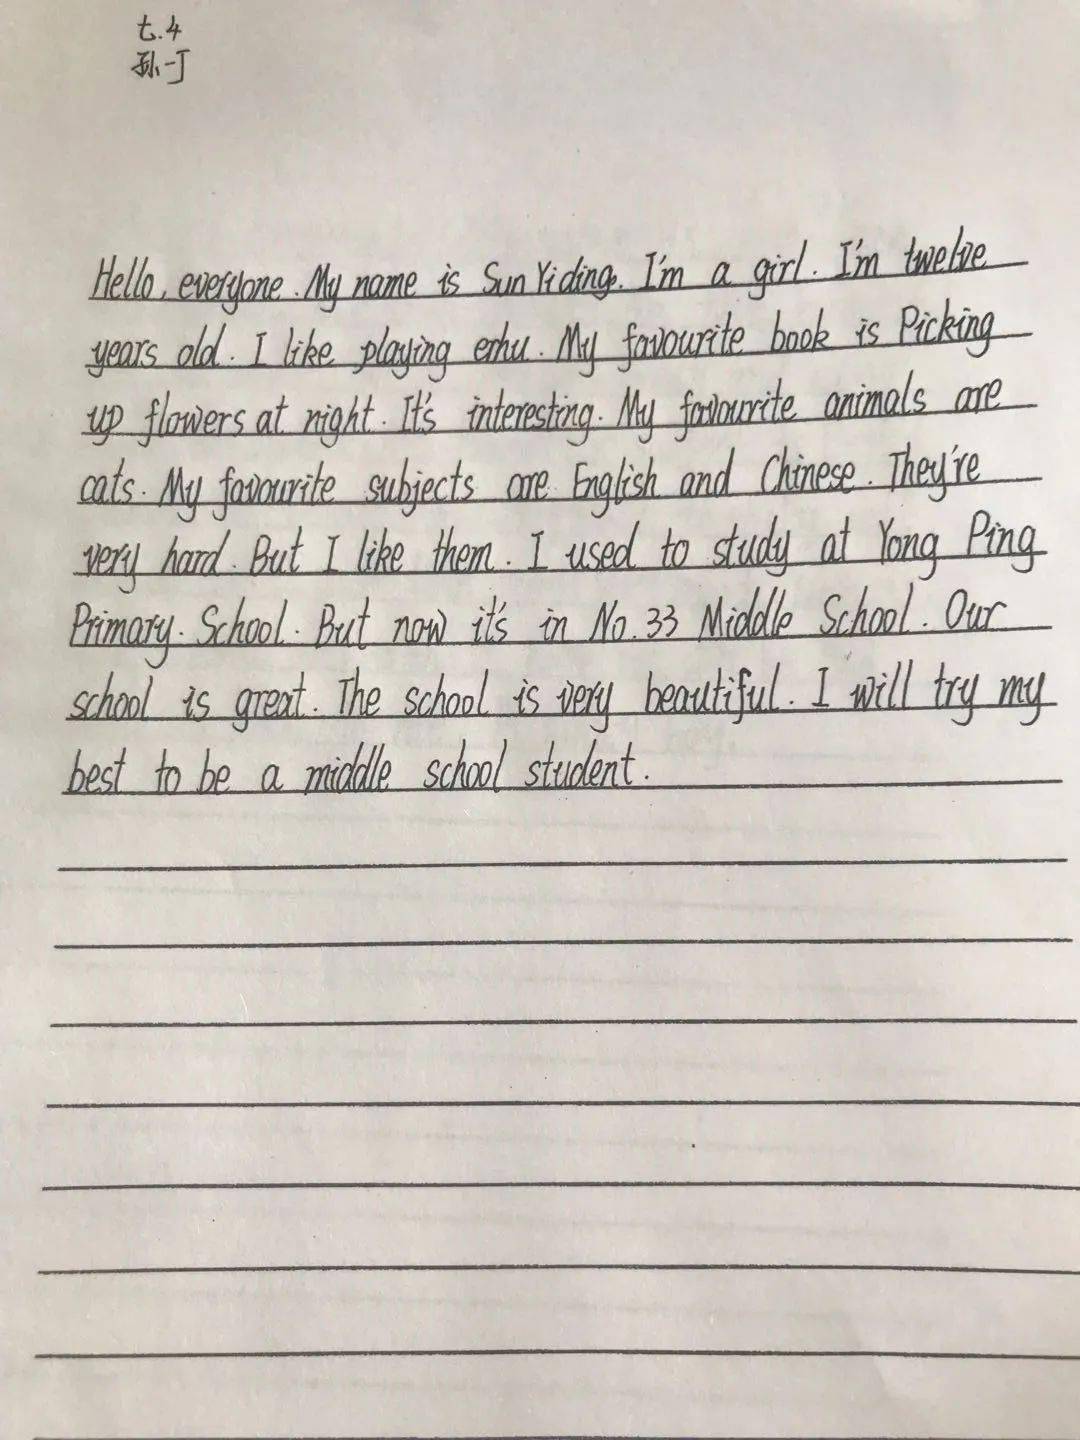 七.4
孙一丁
Hello, everyone. My name is Sun Yiding. I'm a girl. I'm twelve
years old. I like playing erhu. My favourite book is Picking
up flowers at night. It's interesting. My favourite animals are
cats. My favourite subjects are English and Chinese. They're
very hard. But I like them. I used to study at Yong Ping
Primary. School. But now it's in No.33 Middle School. Our
school is great. The school is very beautiful. I will try my
best to be a middle school student.